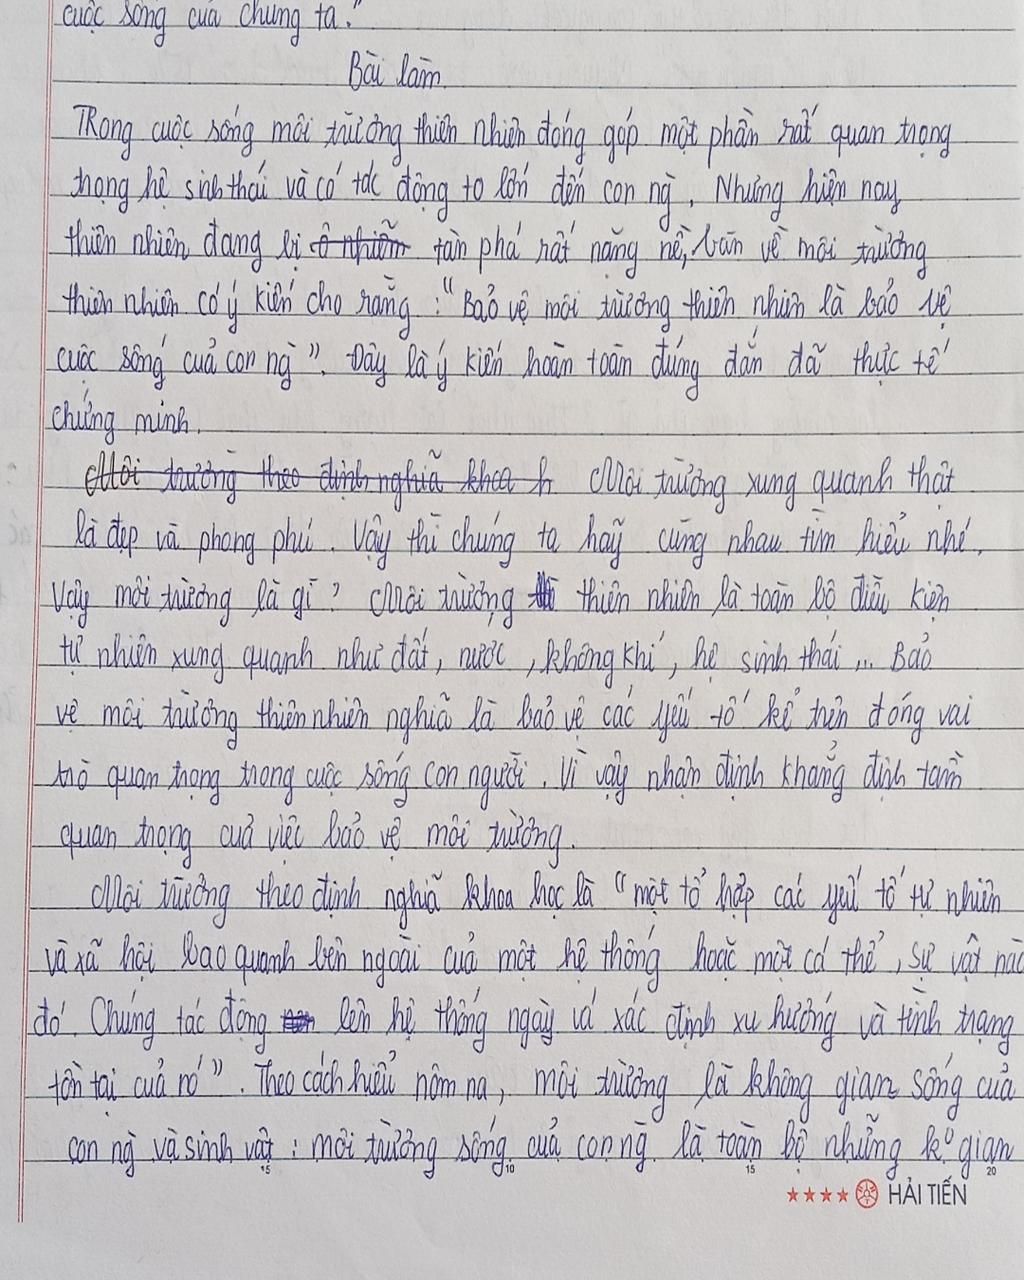 cuộc sống của chúng ta."
Bài làm
Trong cuộc sống môi trường thiên nhiên đóng góp một phần rất quan trọng
trong hệ sinh thái và có tác động to lớn đến con ng`. Nhưng hiện nay
thiên nhiên đang bị ô nhiễm tàn phá rất nặng nề, bàn về môi trường
thiên nhiên có ý kiến cho rằng : "Bảo vệ môi trường thiên nhiên là bảo vệ
cuộc sống cuả con ng`". Đây là ý kiến hoàn toàn đúng đắn đã thực tế
chứng minh.
Môi trường theo định nghiã khoa h Môi trường xung quanh thật
là đẹp và phong phú. Vậy thì chúng ta hãy cùng nhau tìm hiểu nhé.
Vậy môi trường là gì? Môi trường thiên nhiên là toàn bộ điều kiện
tự nhiên xung quanh như đất, nước, không khí, hệ sinh thái... Bảo
vệ môi trường thiên nhiên nghiã là bảo vệ các yếu tố kể trên đóng vai
trò quan trọng trong cuộc sống con người. Vì vậy nhận định khẳng định tầm
quan trọng cuả việc bảo vệ môi trường.
Môi trường theo định nghiã khoa học là "một tổ hợp các yếu tố tự nhiên
và xã hội bao quanh bên ngoài cuả một hệ thống hoặc một cá thể, sự vật nào
đó. Chúng tác động lên hệ thống ngày và xác định xu hướng và tình trạng
tồn tại cuả nó". Theo cách hiểu nôm na, môi trường là không gian sống cuả
con ng` và sinh vật : môi trường sống cuả con ng` là toàn bộ những k° gian
15 10 15 20
HẢI TIẾN